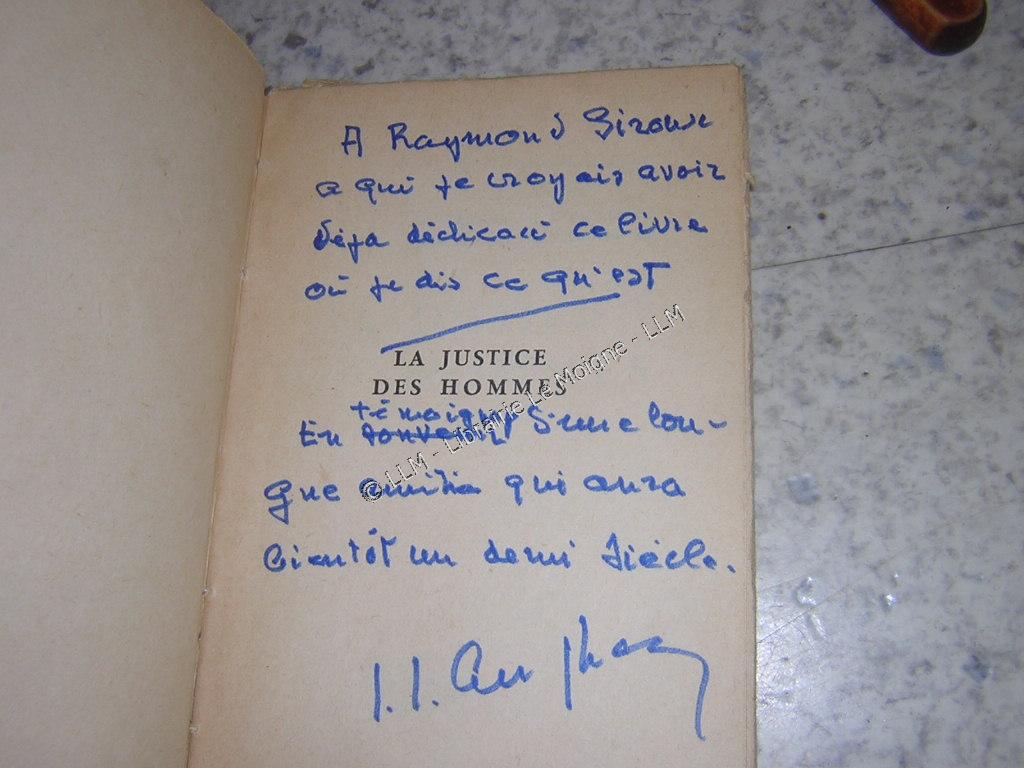 A Raymond
a qui je croyais avoir
déja dédicacé ce livre
où je dis ce qu'est
LA JUSTICE
DES HOMMES
témoignage
En souvenir d'une lon-
gue amitié qui aura
bientôt un demi siècle.
© LLM - Librairie Le Moigne - LLM